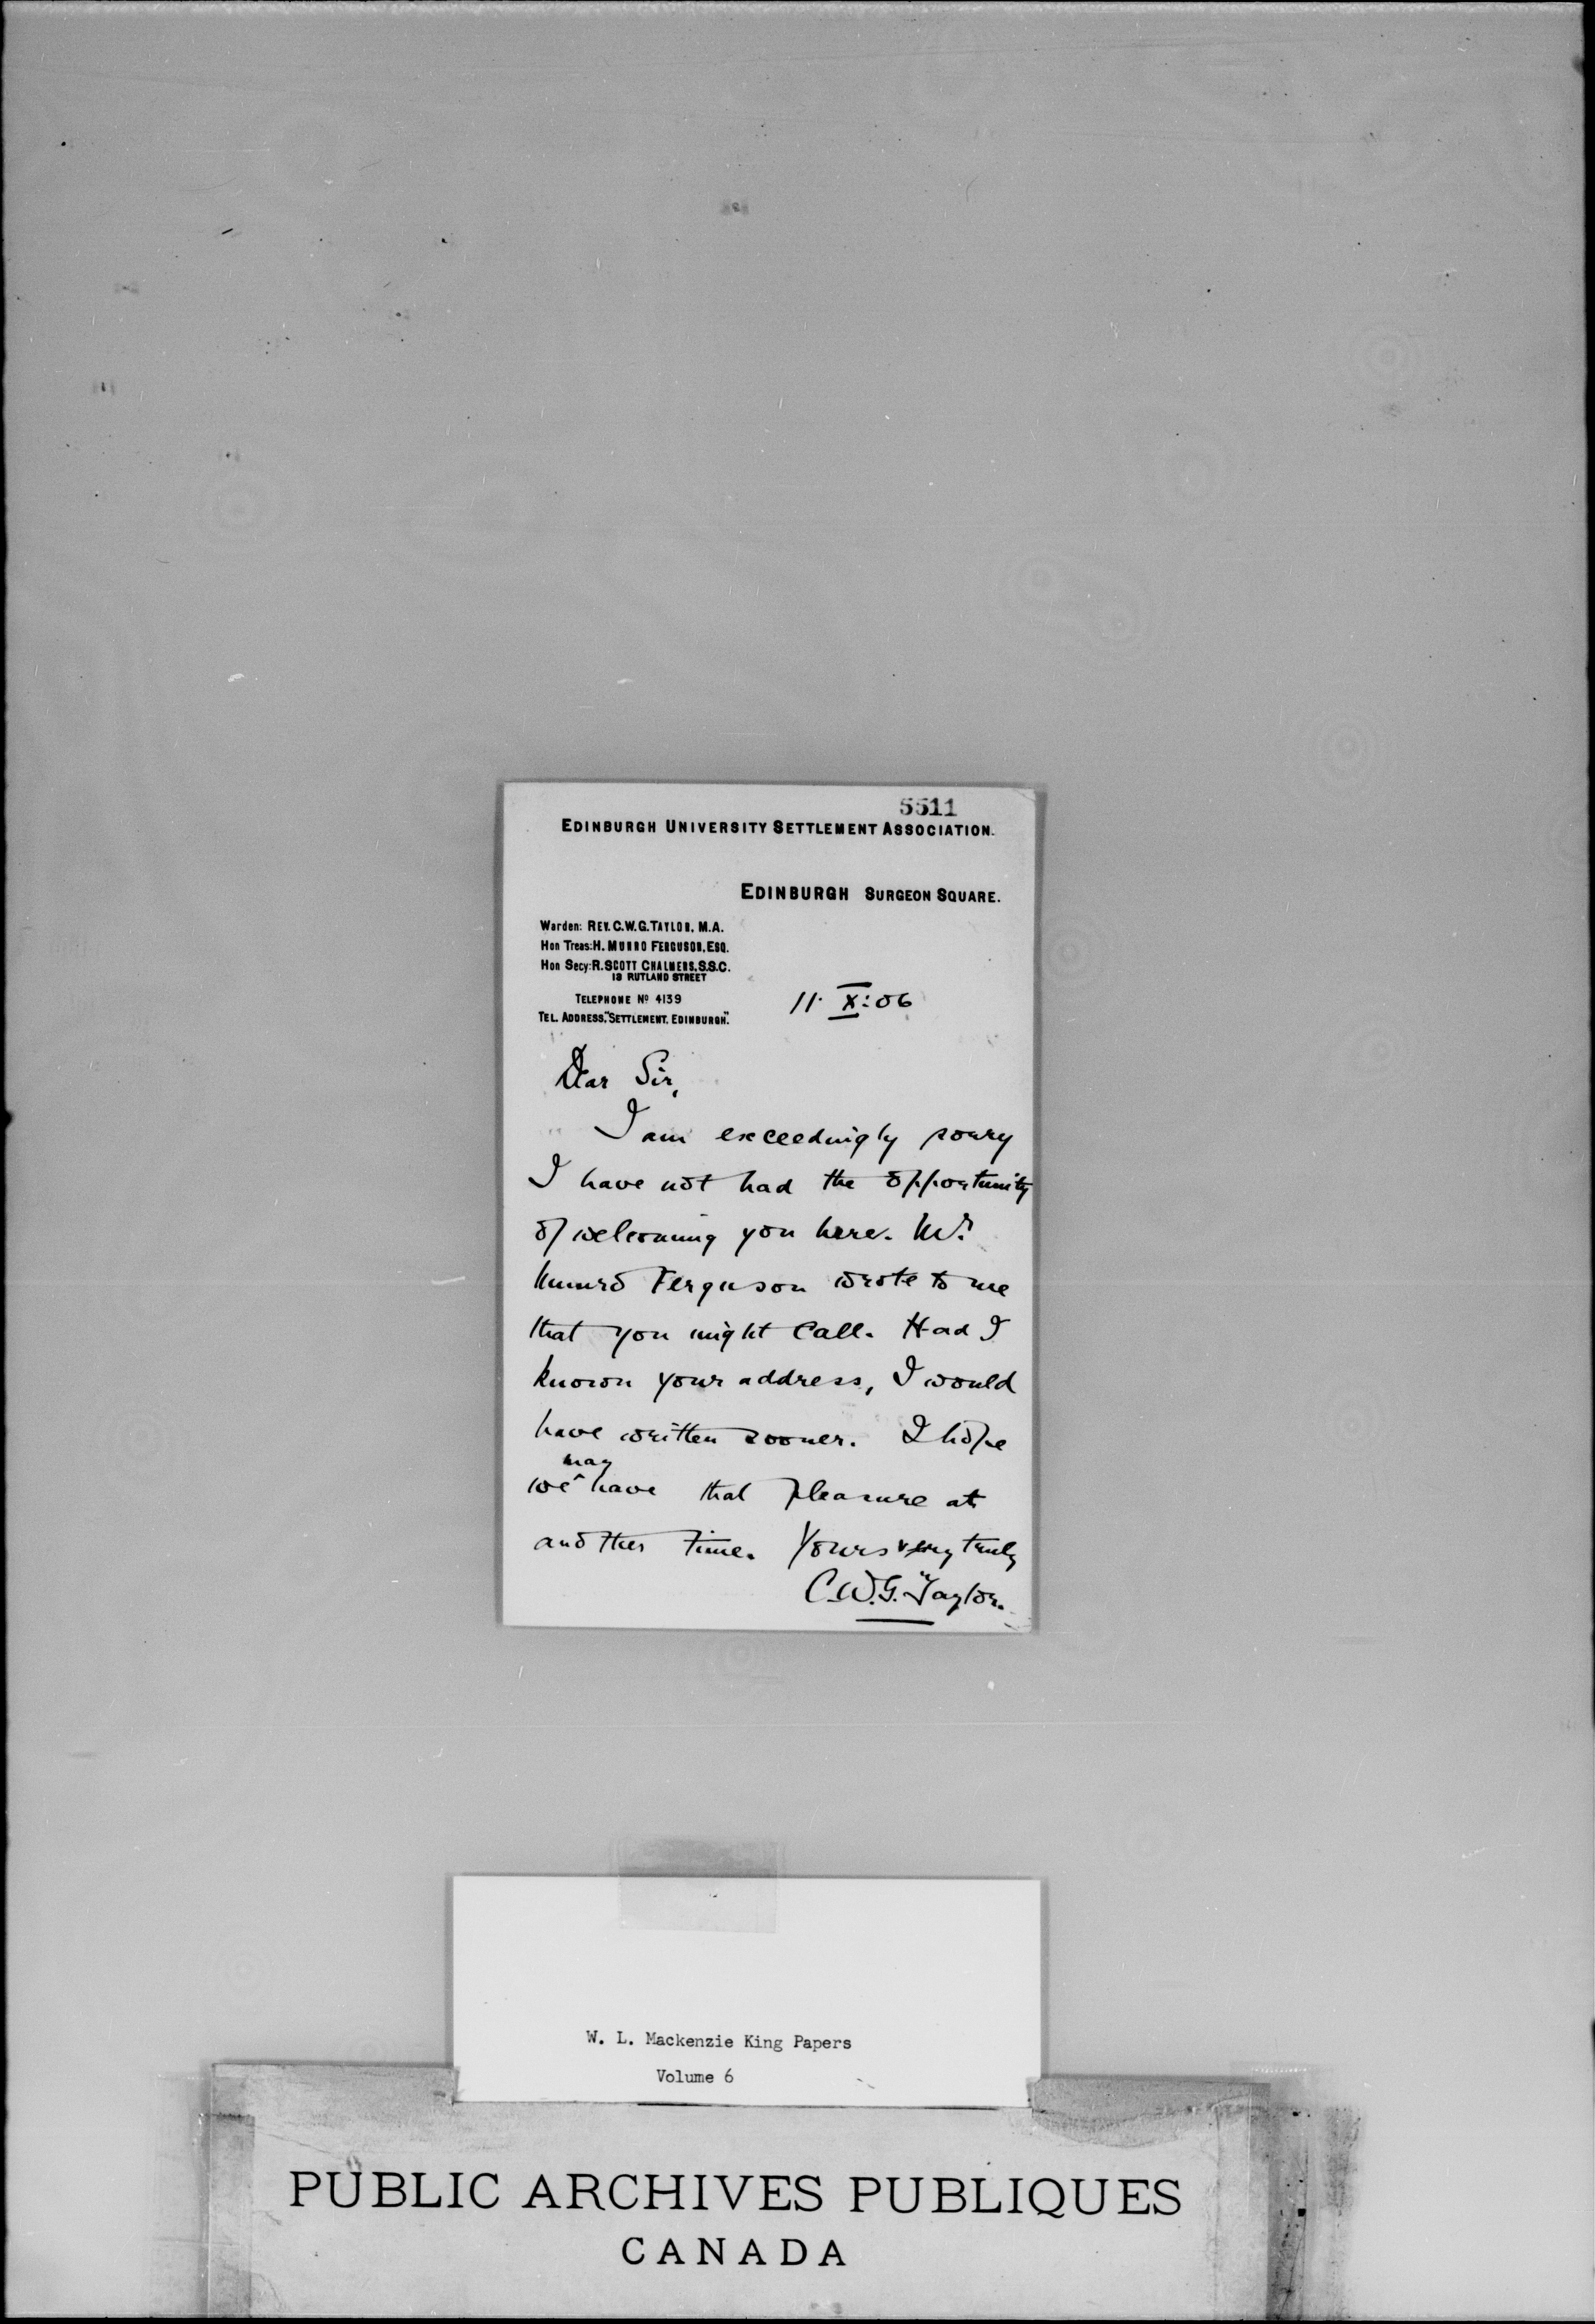 5511
EDINBURGH UNIVERSITY SETTLEMENT ASSOCIATION.
EDINBURGH SURGEON SQUARE.
Warden: REV. C.W.G. TAYLOR, M.A.
Hon Treas: H. MUNRO FERGUSON, ESQ.
Hon Secy: R. SCOTT CHALMERS, S.S.C.
13 RUTLAND STREET
TELEPHONE Nº 4139
TEL. ADDRESS, "SETTLEMENT, EDINBURGH".
11. X: 06
Dear Sir,
I am exceedingly sorry
I have not had the opportunity
of welcoming you here. Mr.
Munro Ferguson wrote to me
that you might call. Had I
known your address, I would
have written sooner. I hope
may
we ^ have that pleasure at
another time. Yours very truly
C.W.G. Taylor.
W. L. Mackenzie King Papers
Volume 6
PUBLIC ARCHIVES PUBLIQUES
CANADA